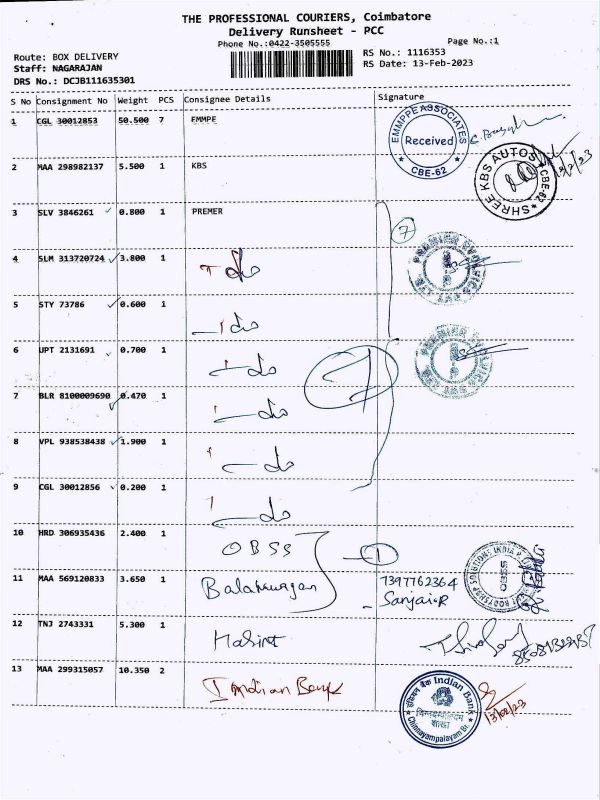 THE PROFESSIONAL COURIERS, Coimbatore
Delivery Runsheet - PCC
Phone No.:0422-3505555
Page No.:1
Route: BOX DELIVERY
RS No.: 1116353
Staff: NAGARAJAN
RS Date: 13-Feb-2023
DRS No.: DCJB111635301
S No Consignment No Weight PCS Consignee Details Signature
1 CGL 30012853 50.500 7 EMMPE
EMMPPE ASSOCIATES
Received
CBE-62
2 MAA 298982137 5.500 1 KBS
SHREE KBS AUTOS
CBE-62
3 SLV 3846261 0.800 1 PREMER
7
4 SLM 313720724 3.800 1
5 STY 73786 0.600 1
6 UPT 2131691 0.700 1
7 BLR 8100009690 0.470 1
8 VPL 938538438 1.900 1
9 CGL 30012856 0.200 1
10 HRD 306935436 2.400 1 OBSS
1
11 MAA 569120833 3.650 1 Balamurgan 7397762364
Sanjai.R
OBSS
12 TNJ 2743331 5.300 1
13 MAA 299315057 10.350 2 Indian Bank
इंडियन बैंक Indian Bank
शाखा
Chinnayampalayam Br.
13/02/23